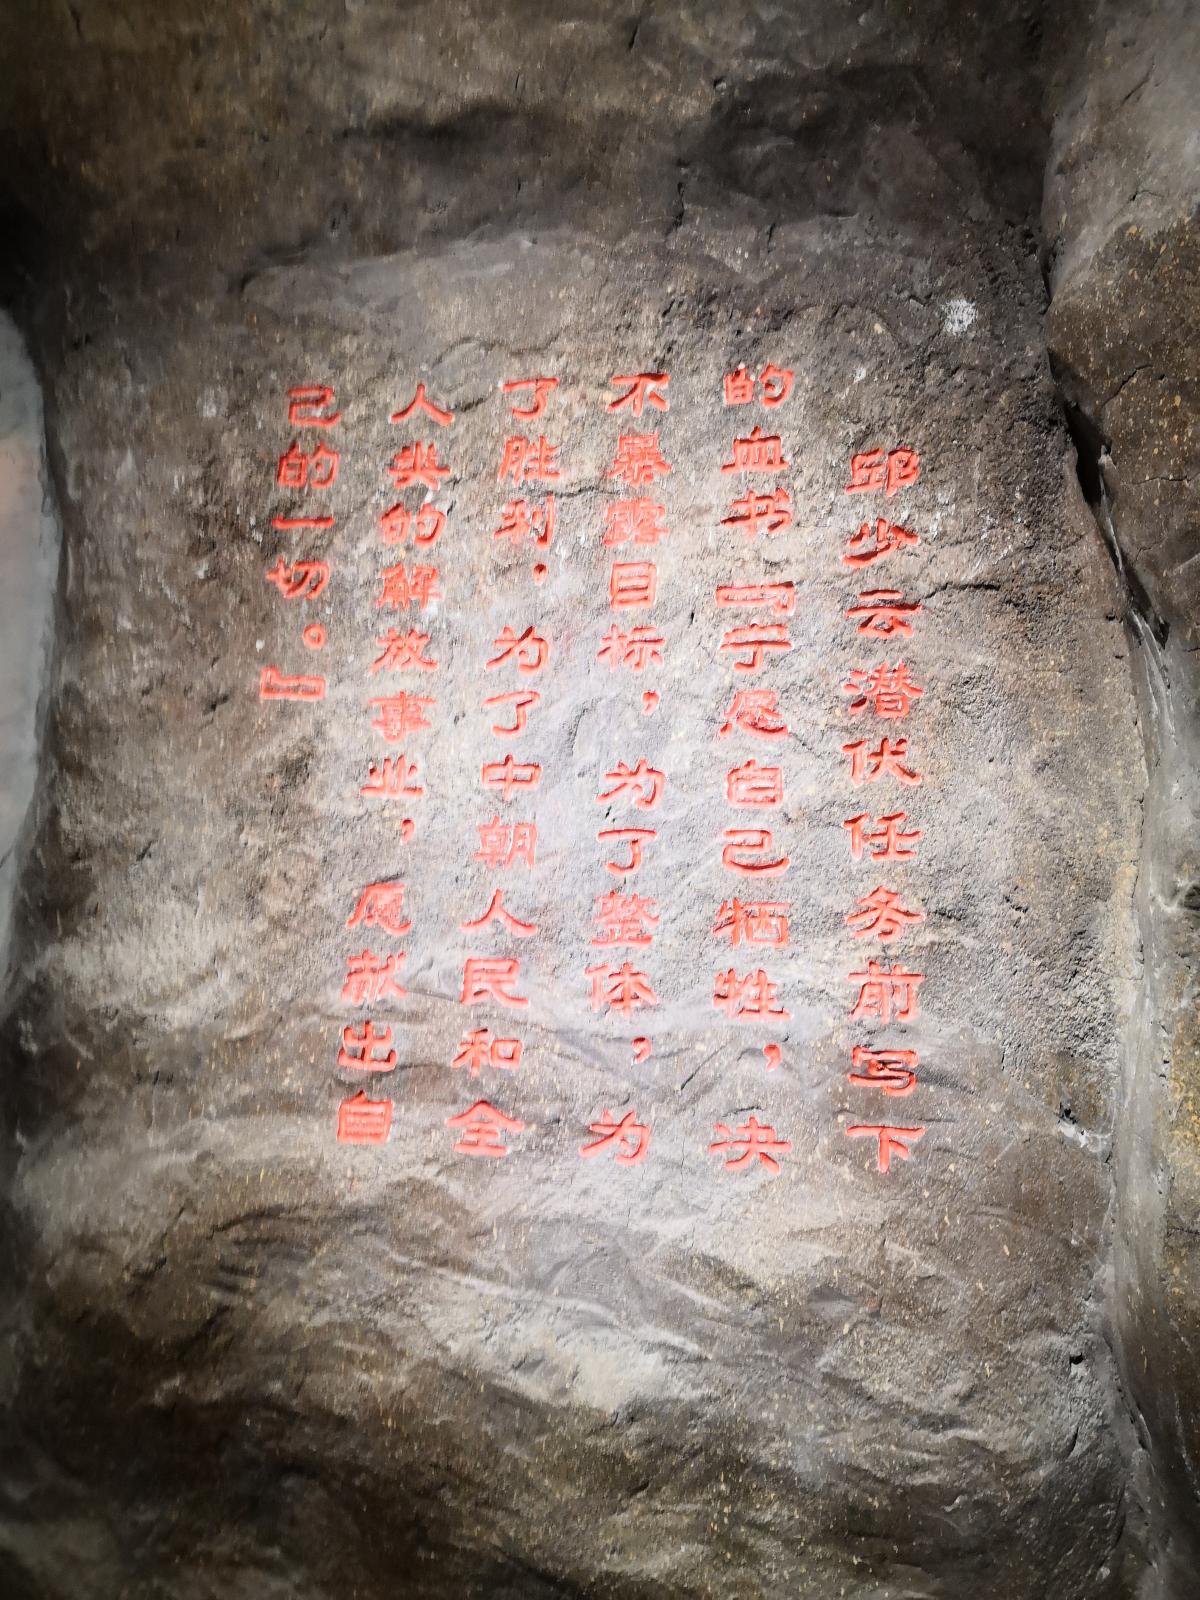 邱少云潜伏任务前写下
的血书『宁愿自己牺牲，决
不暴露目标，为了整体，为
了胜利，为了中朝人民和全
人类的解放事业，愿献出自
己的一切。』